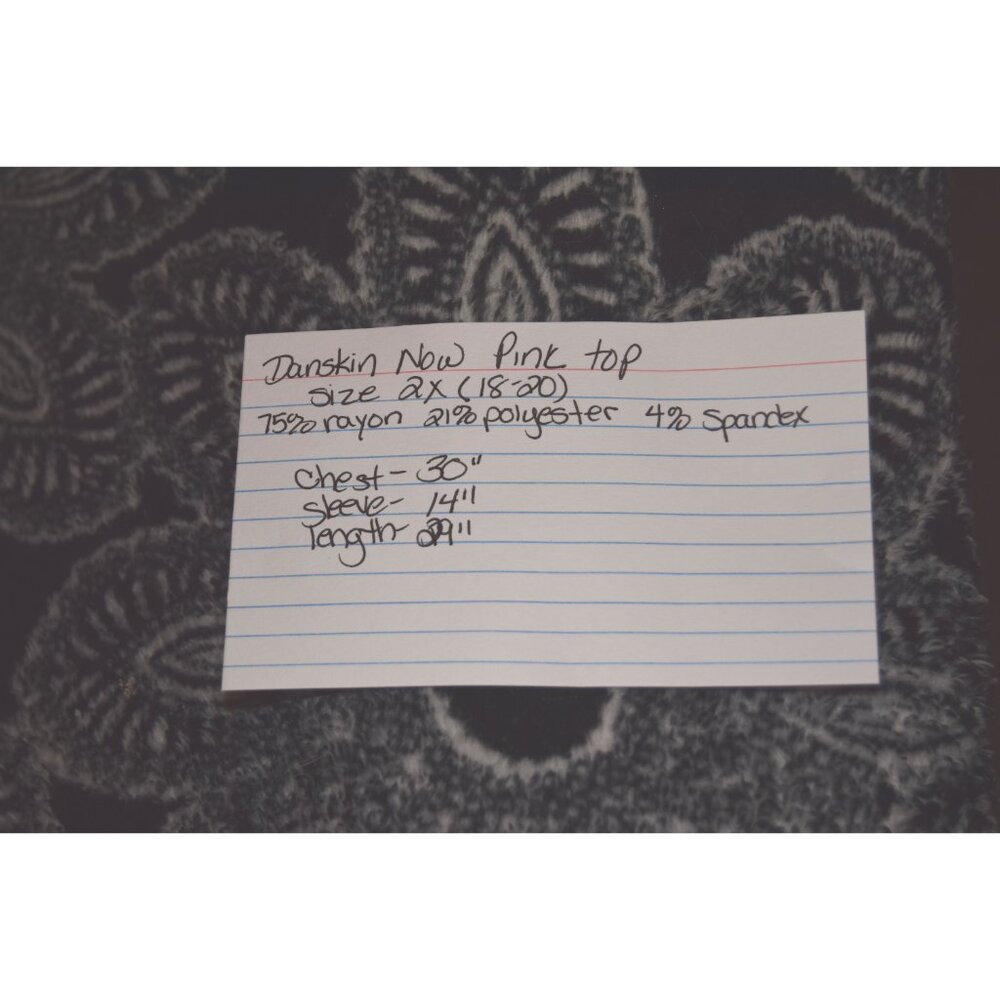 Danskin Now Pink top
size 2X (18-20)
75% rayon 21% polyester 4% Spandex
Chest- 30"
sleeve- 14"
length- 29"